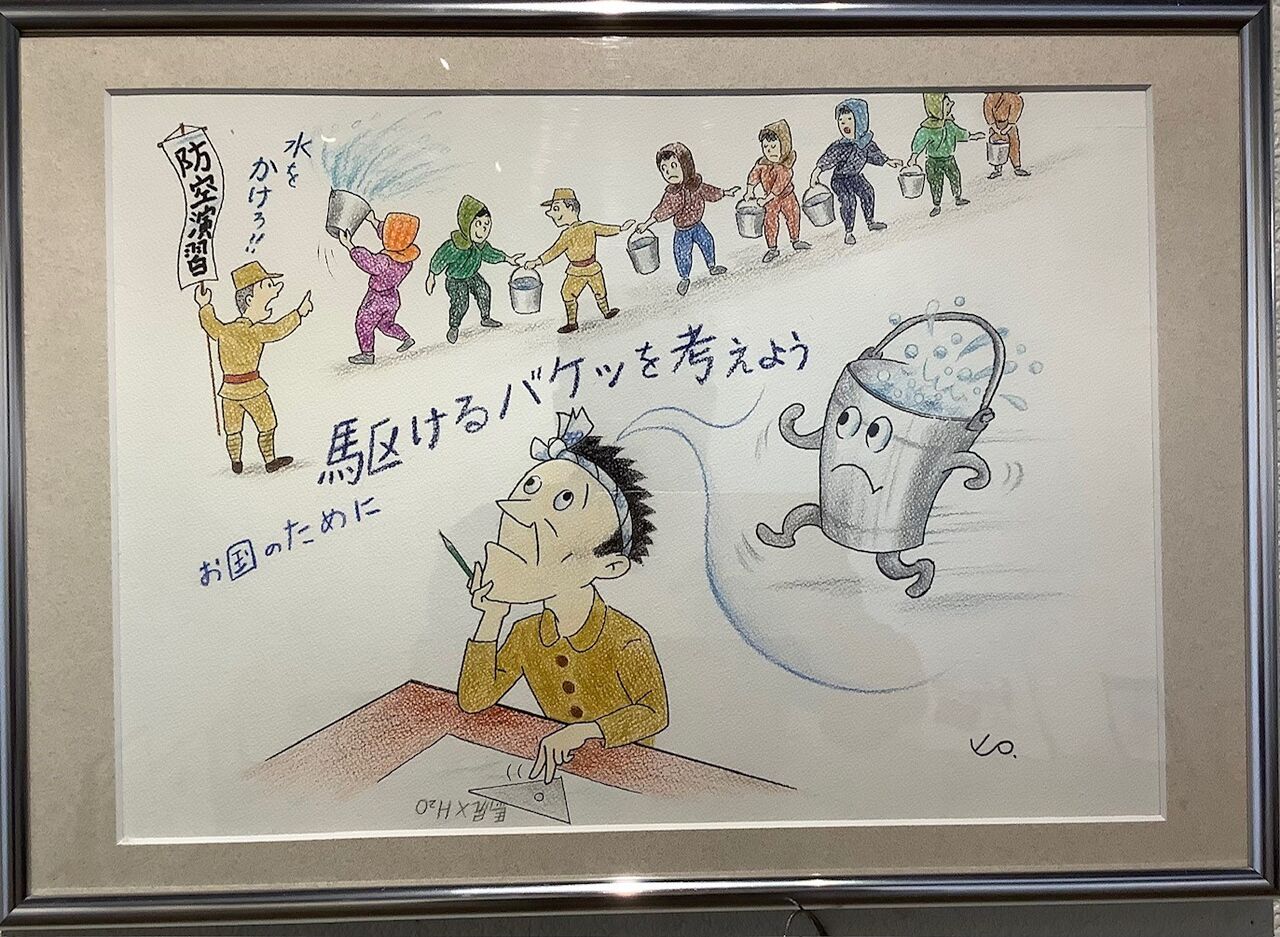 防空演習
水を
かけろ!!
駆けるバケツを考えよう
お国のために
馬尻×H₂O